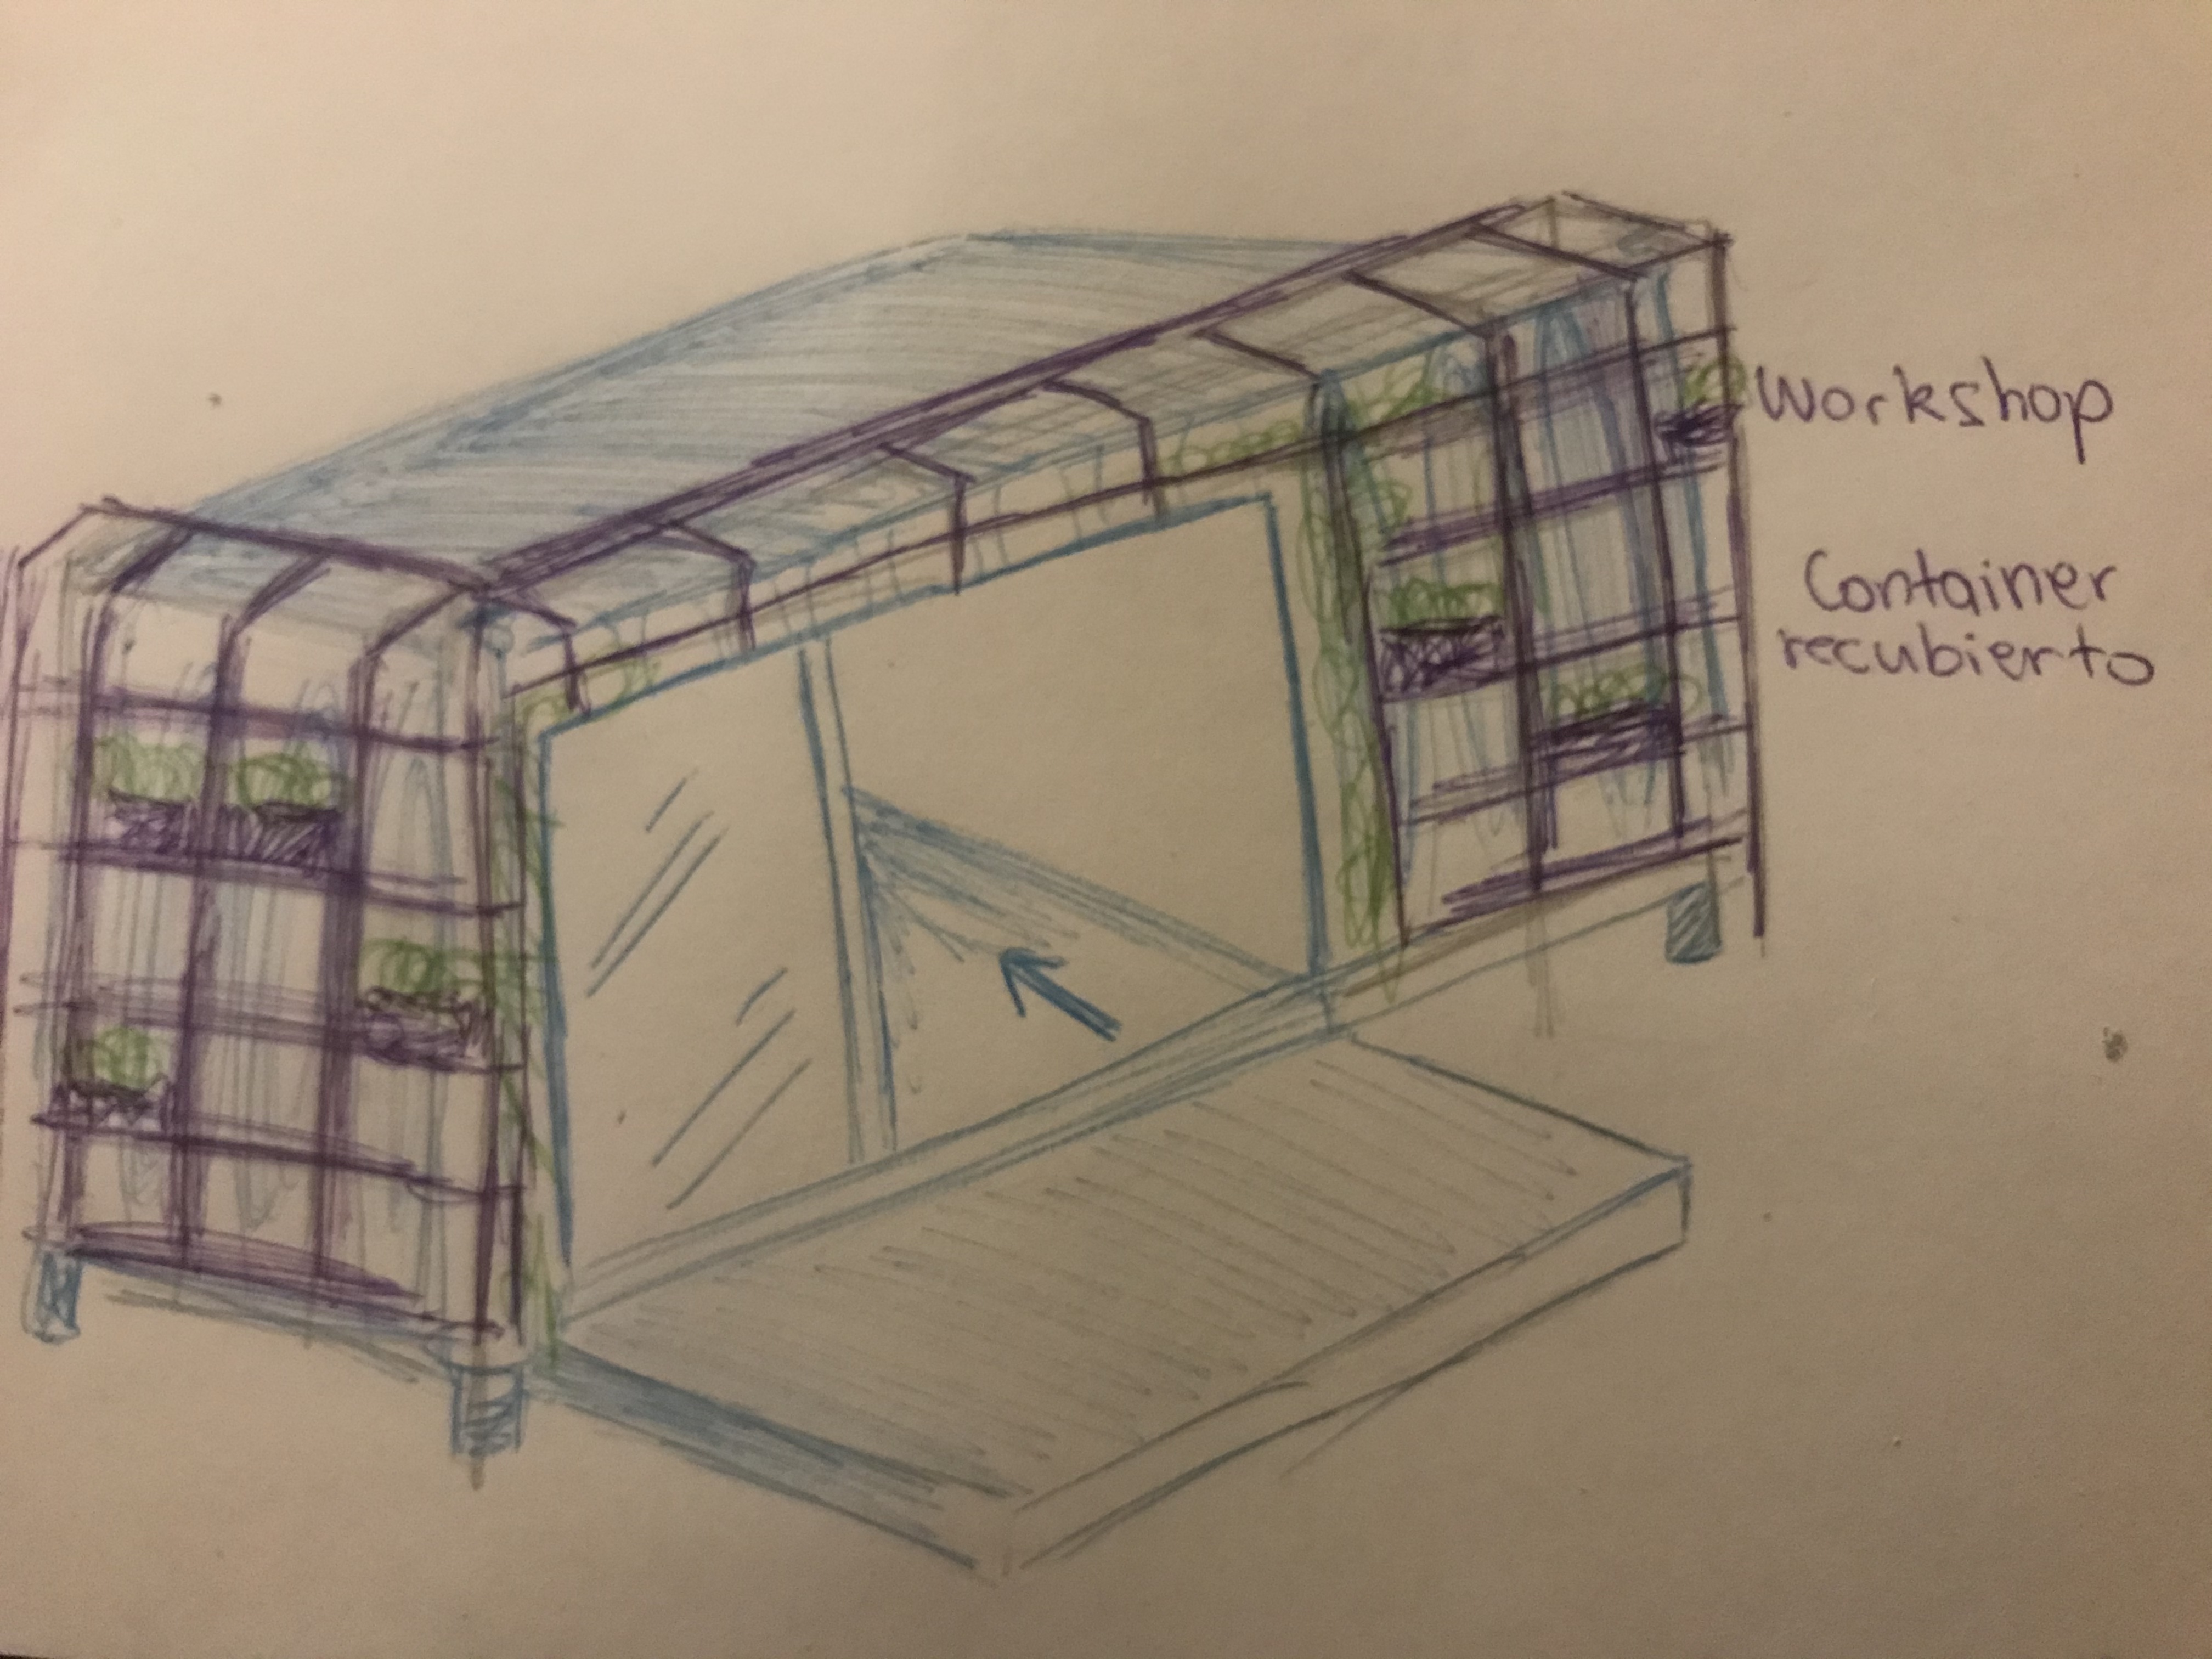 Workshop
Container
recubierto